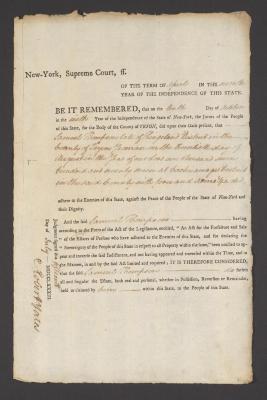 New-York, Supreme Court, ss.
OF THE TERM OF April IN THE
YEAR OF THE INDEPENDENCE OF THIS STATE.
BE IT REMEMBERED, that on the Day of October
in the sixth Year of the Independence of the State of New-York, the Jurors of the People
of this State, for the Body of the County of TRYON, did upon their Oath present, that
Samuel Thompson late of Kingsland District in the
County of Tryon Yeoman on the Day of
in the Year of our Lord one thousand seven
hundred and seventy seven at
in the County and State aforesaid, did
adhere to the Enemies of this State, against the Peace of the People of the State of New-York and
their Dignity.
And the said Samuel Thompson having
according to the Form of the Act of the Legislature, entitled, "An Act for the Forfeiture and Sale
" of the Estates of Persons who have adhered to the Enemies of this State, and for declaring the
" Sovereignty of the People of this State in respect to all Property within the same," been notified to appear
and traverse the said Indictment, and not having appeared and traversed within the Time, and in
the Manner, in and by the said Act limited and required; IT IS THEREFORE CONSIDERED,
that the said Samuel Thompson do forfeit
all and singular the Estate, both real and personal, whether in Possession, Reversion or Remainder,
held or claimed by him within this State, to the People of this State.
Judgment signed this
Day of July MDCCLXXXIII
Robert Yates